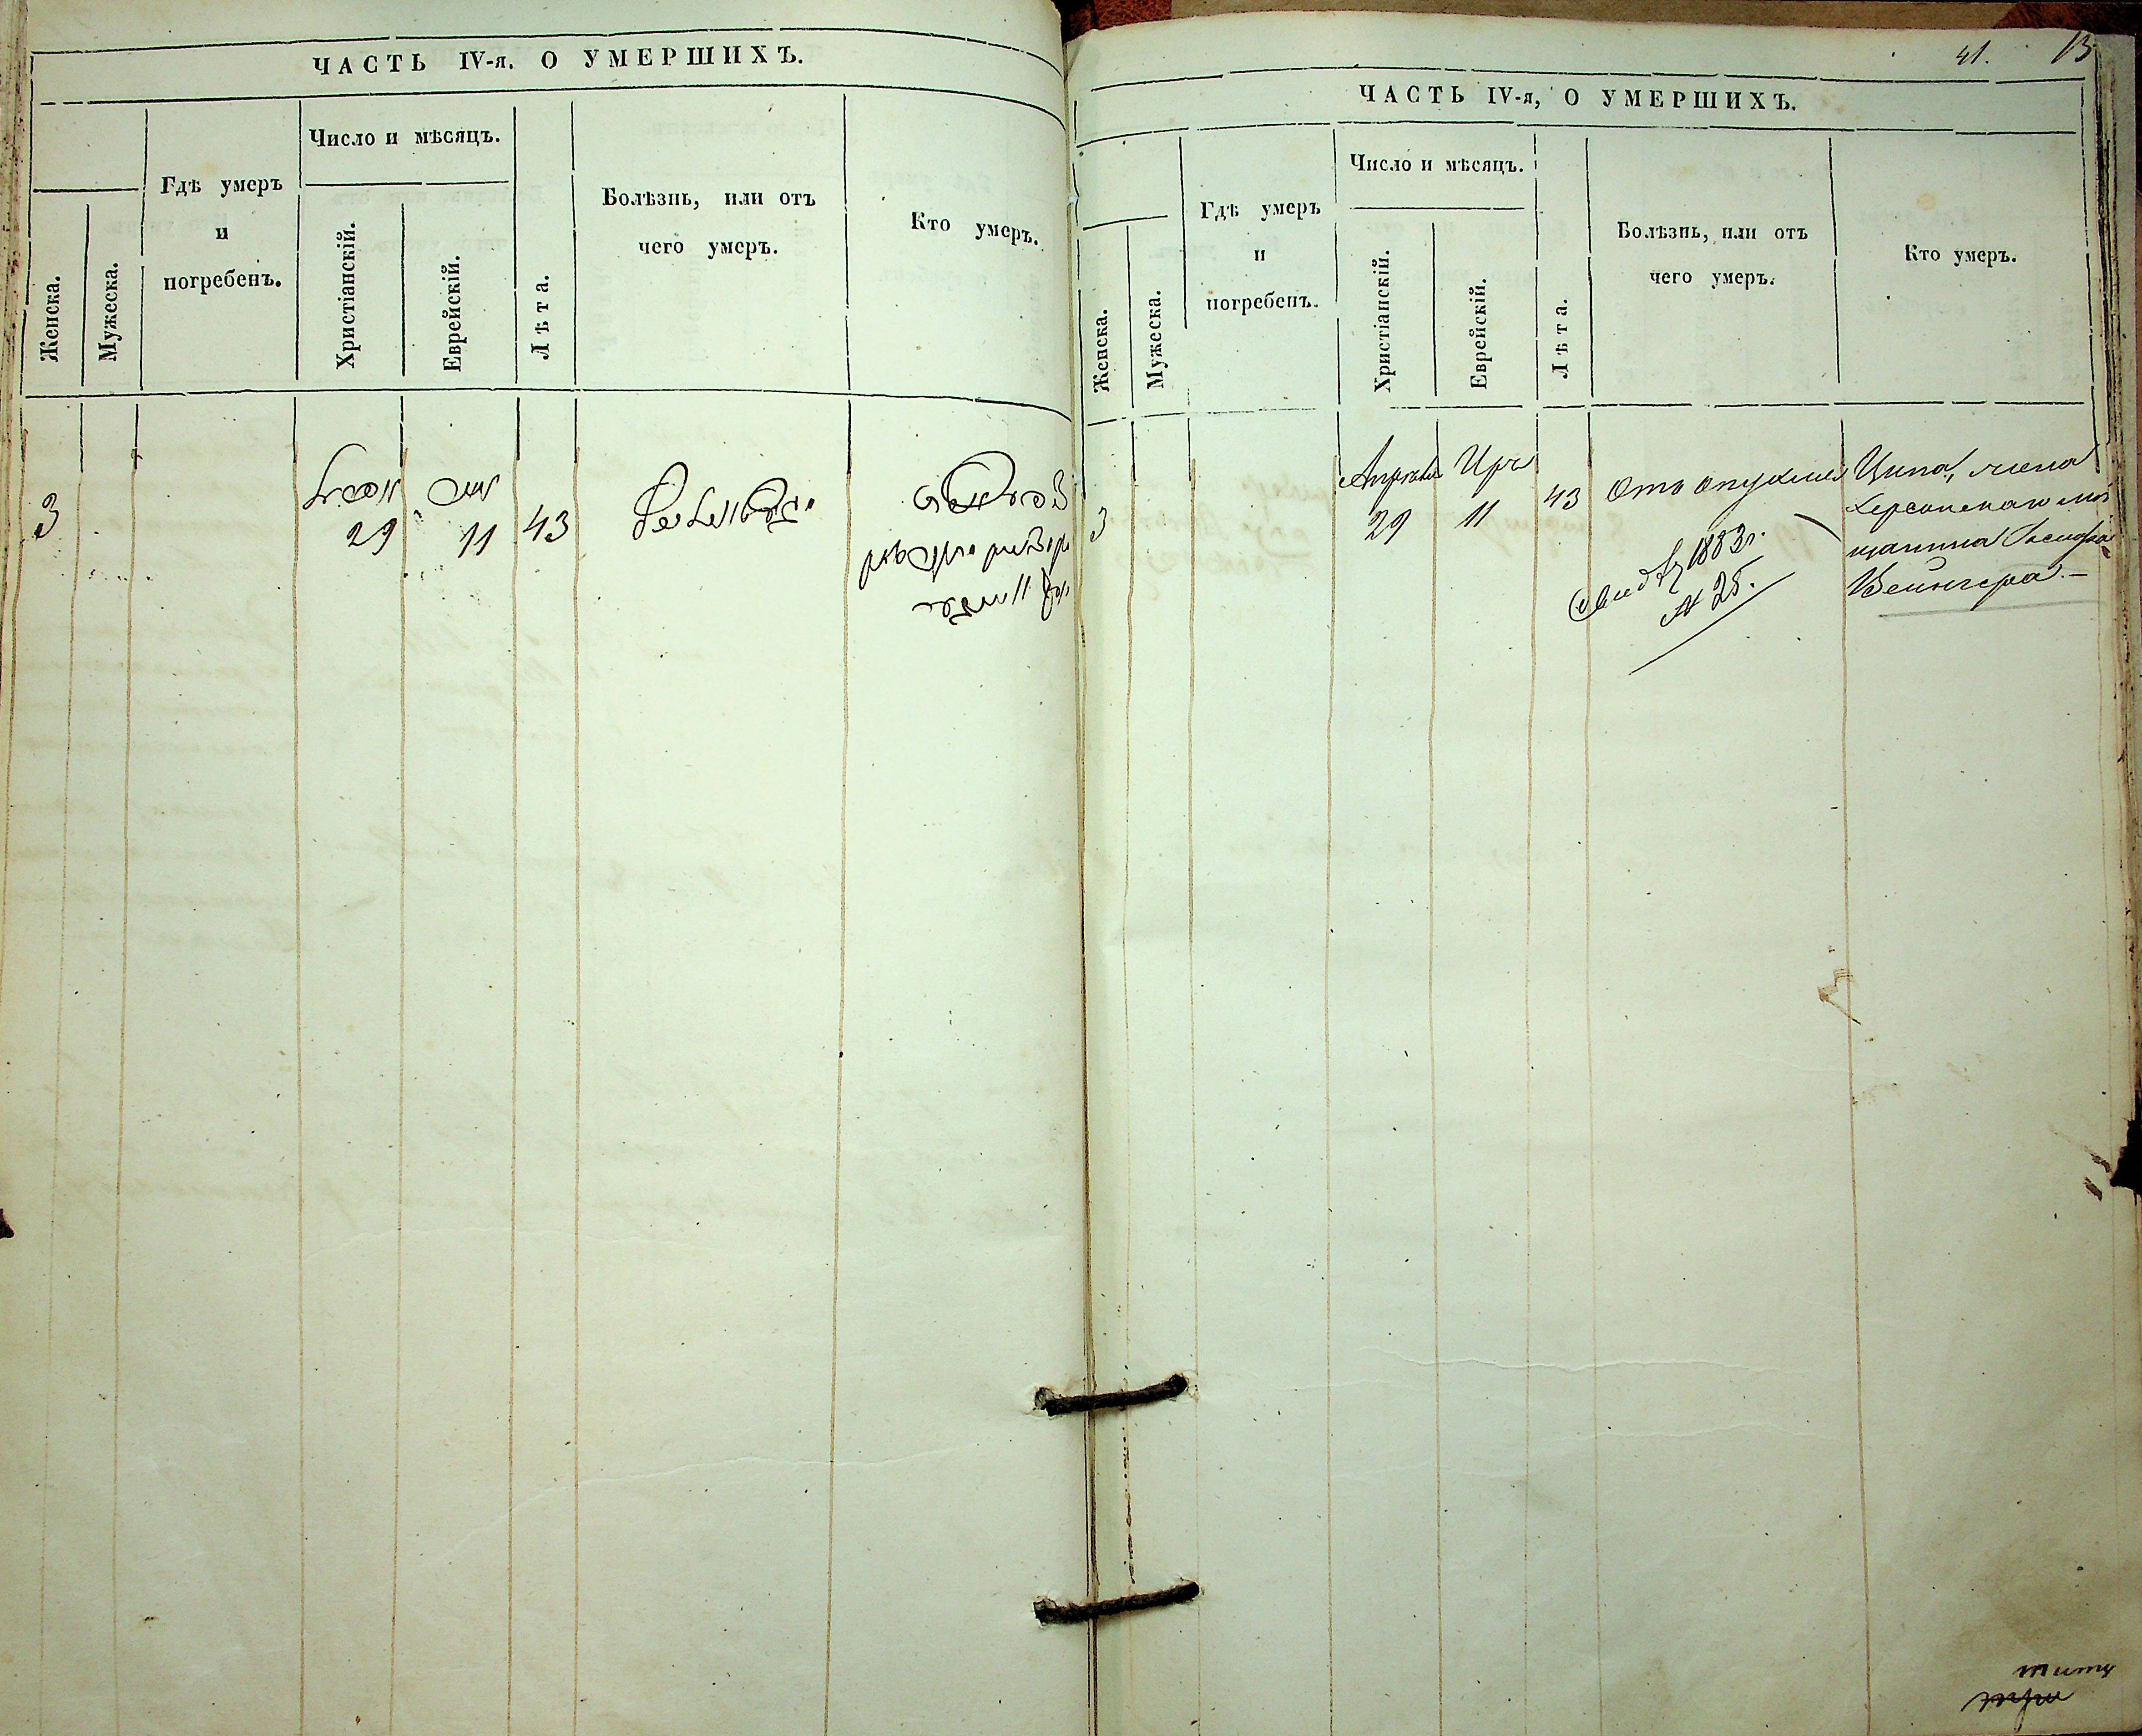 ЧАСТЬ IV-я. О УМЕРШИХЪ.
Женска.
Мужеска.
Гдѣ умеръ
и
погребенъ.
Число и мѣсяцъ.
Христіанскій.
Еврейскій.
Лѣта.
Болѣзнь, или отъ
чего умеръ.
Кто умеръ.
3
29
11
43
41. 13
ЧАСТЬ IV-я, О УМЕРШИХЪ.
Женска.
Мужеска.
Гдѣ умеръ
и
погребенъ.
Число и мѣсяцъ.
Христіанскій.
Еврейскій.
Лѣта.
Болѣзнь, или отъ
чего умеръ.
Кто умеръ.
3
Апрѣля
29
Иръ
11
43
Отъ опухлиы
1883 г.
№ 25.
Ципа, жена
Херсонскаго мѣ
щанина Іосифа
Вейнгера. —